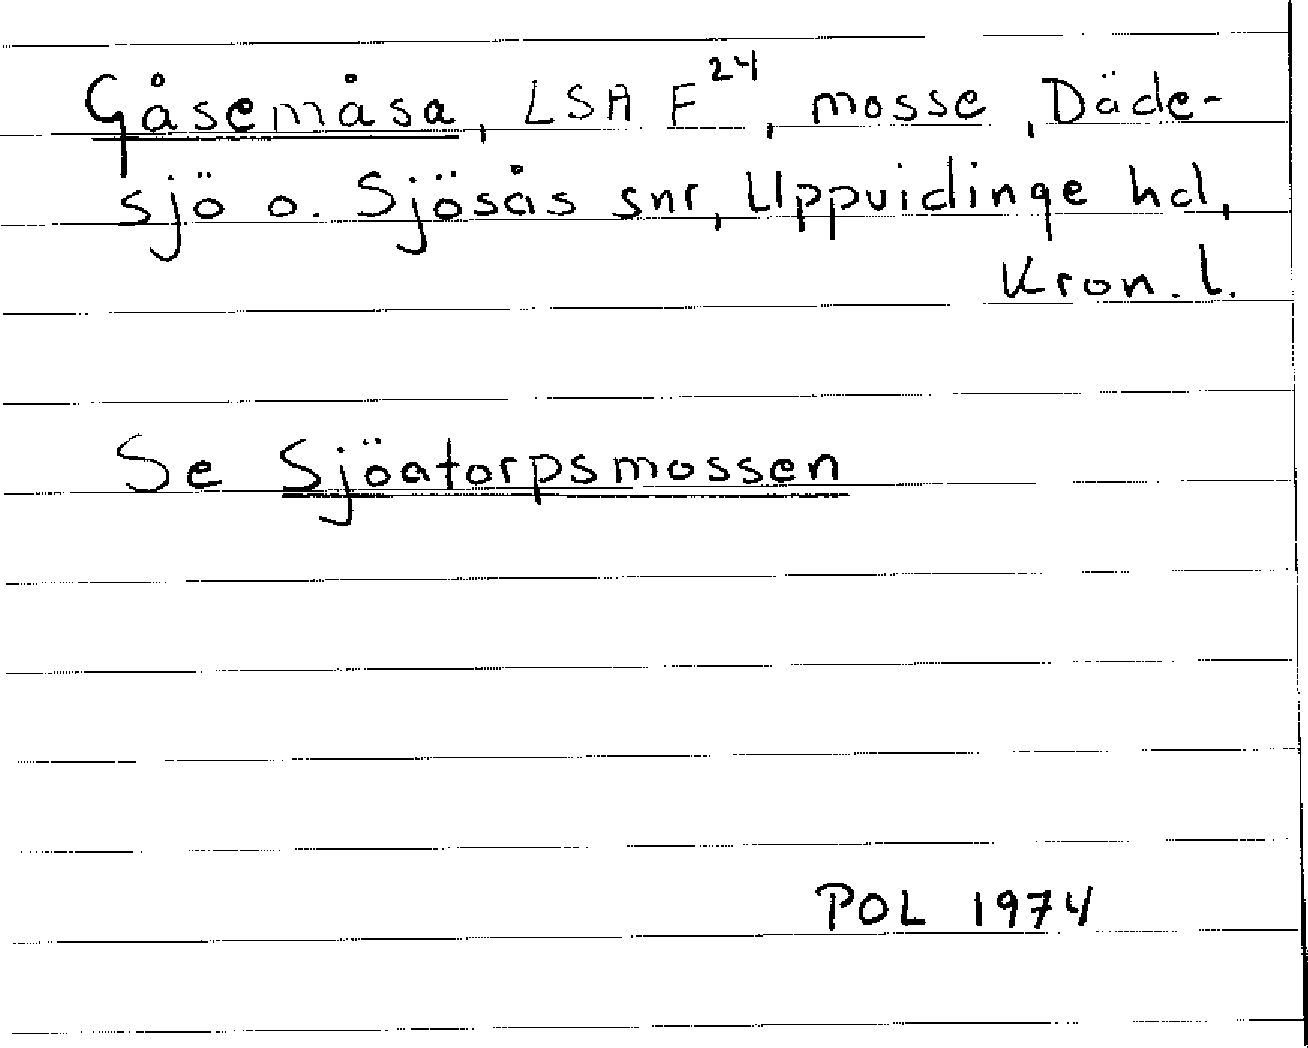 Gåsemåsa, LSA F²⁴, mosse, Däde-
sjö o. Sjösås snr, Uppvidinge hd,
Kron. l.
Se Sjöatorpsmossen
POL 1974